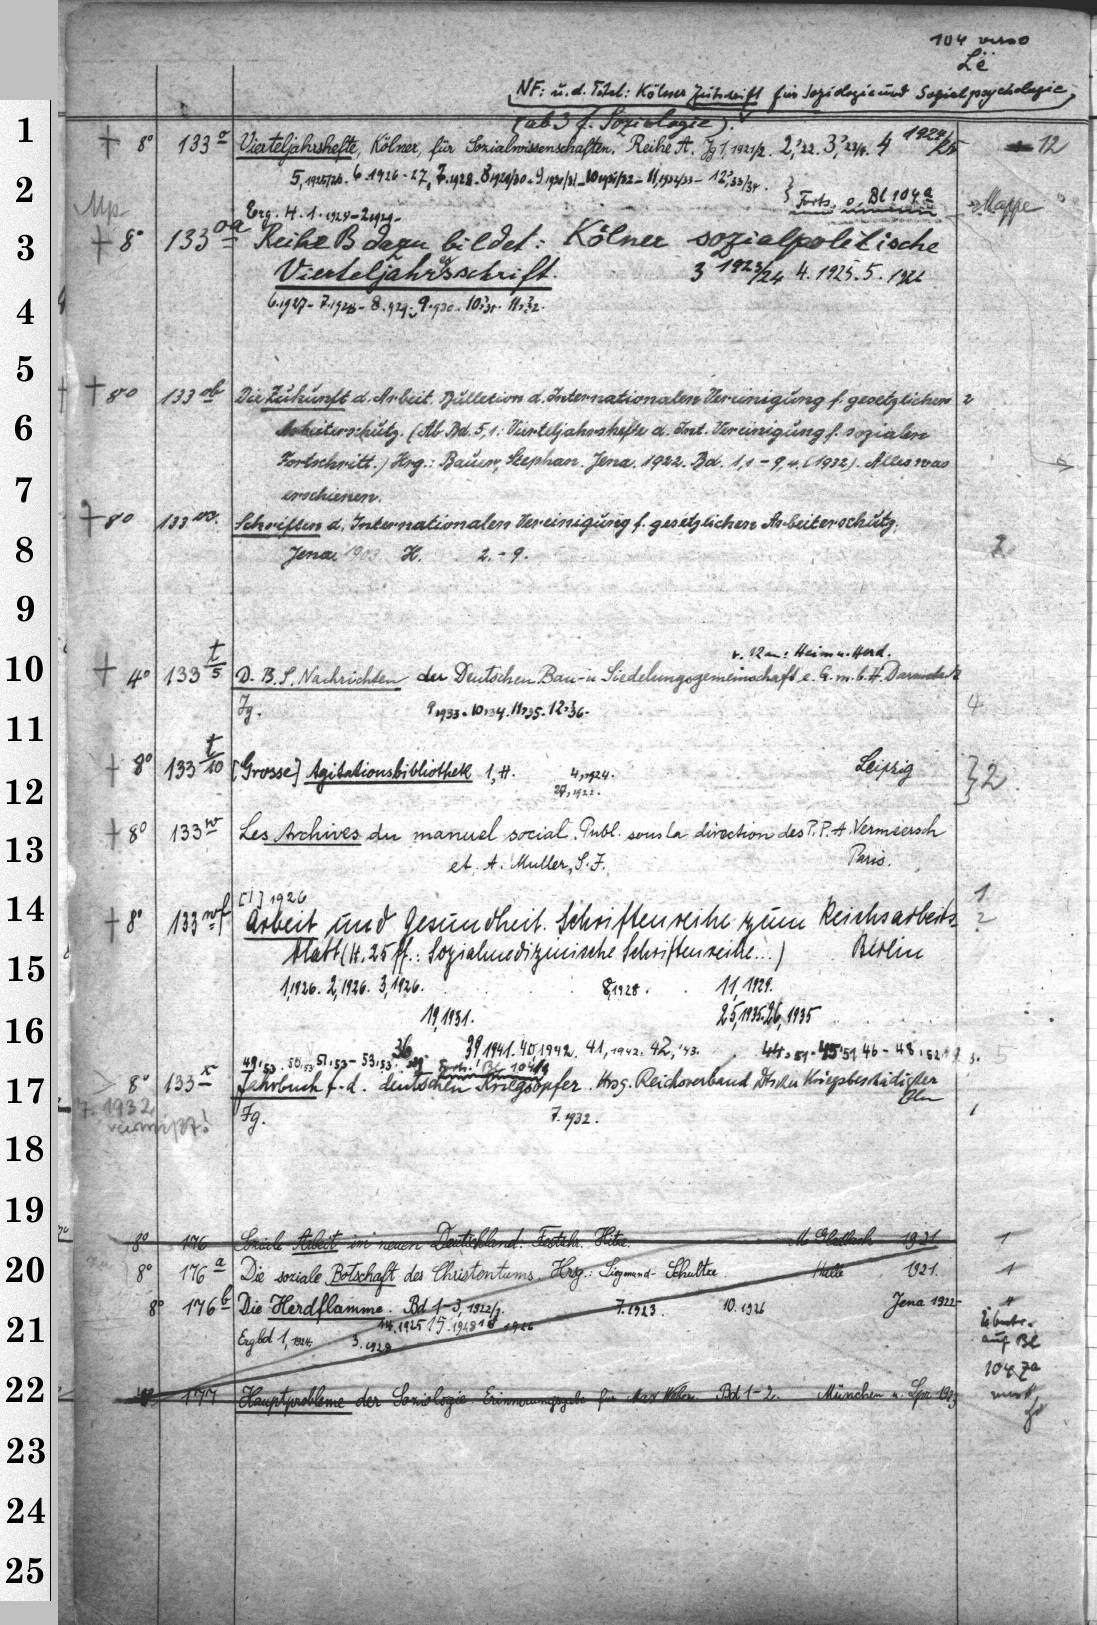 104 verso
Lë
NF: u. d. Titel: Kölner Zeitschrift für Soziologie und Sozialpsychologie,
(ab 3 f. Soziologie).
+ 8° 133 Vierteljahrshefte, Kölner, für Sozialwissenschaften. Reihe A. Jg 1, 1921/2. 2, 22. 3, 23/4. 4 1924/25 12
5, 1925/26. 6. 1926-27, 7. 1928. 8 1929/30 - 9 1930/31 - 10 1931/32 - 11, 1932/33 - 12, 33/34.
Forts. s. Bl 104 a
Mappe
Erg. H. 1. 1928 - 2 1929 -
+ 8° 133 oa Reihe B dazu bildet: Kölner sozialpolitische
Vierteljahrsschrift. 3 1923/24 4. 1925. 5. 1926
6. 1927 - 7. 1928 - 8. 1929 - 9. 1930. 10. 31. 11. 32.
+ 8° 133 ob Die Zukunft d. Arbeit. Bulletion d. Internationalen Vereinigung f. gesetzlichen 2
Arbeiterschutz. (Ab Bd. 5, 1: Vierteljahrshefte d. Int. Vereinigung f. sozialen
Fortschritt.) Hrg.: Bauer, Stephan. Jena. 1922. Bd. 1, 1 - 9, 4. (1932). Alles was
erschienen.
+ 8° 133 oc. Schriften d. Internationalen Vereinigung f. gesetzlichen Arbeiterschutz.
Jena 1903 H. 2. - 9. 2
v. 12 an: Heim u. Herd.
+ 4° 133 t/5 D. B. S. Nachrichten der Deutschen Bau- u Siedelungsgemeinschaft e. G. m. b. H. Darmstadt
Jg. 9, 1933. 10, 34. 11, 35. 12, 36. 4
+ 8° 133 t/10 [Grosse] Agitationsbibliothek 1, H. 4, 1924. Leipzig } 2
27, 1922.
+ 8° 133 w Les Archives du manuel social. Publ. sous la direction des P. P. A. Vermeersch
et A. Muller, S. J. Paris.
[1] 1926 1
+ 8° 133 wf Arbeit und Gesundheit. Schriftenreihe zum Reichsarbeits- 2
blatt (H. 25 ff.: Sozialmedizinische Schriftenreihe...) Berlin
1, 1926. 2, 1926. 3, 1926. 8, 1928. 11, 1929.
19, 1931. 25, 1935. 26, 1935
36 39, 1941. 40, 1942. 41, 1942. 42, '43. 44, 51 - 45, 51 46 - 48, 52 5
49, 53. 50, 53 51, 53 - 53, 53.
8° 133 x Jahrbuch f. d. deutschen Kriegsopfer. Hrsg. Reichsverband Dtscher Kriegsbeschädigter
Bln
7. 1932
vermißt!
Jg. 7. 1932. 1
8° 176 Soziale Arbeit im neuen Deutschland. Festschr. Hitze. M Gladbach 1921 1
8° 176 a Die soziale Botschaft des Christentums. Hrg.: Siegmund-Schultze Halle 1921. 1
8° 176 b Die Herdflamme. Bd 1-3, 1922/3. 7. 1923. 10. 1926 Jena 1922-
14. 1925 15. 1926
Ergbd 1, 1924. 3. 1928
auf Bl
104 za
177 Hauptprobleme der Soziologie. Erinnerungsgabe für Max Weber. Bd 1-2. München u. Lpz. 1923